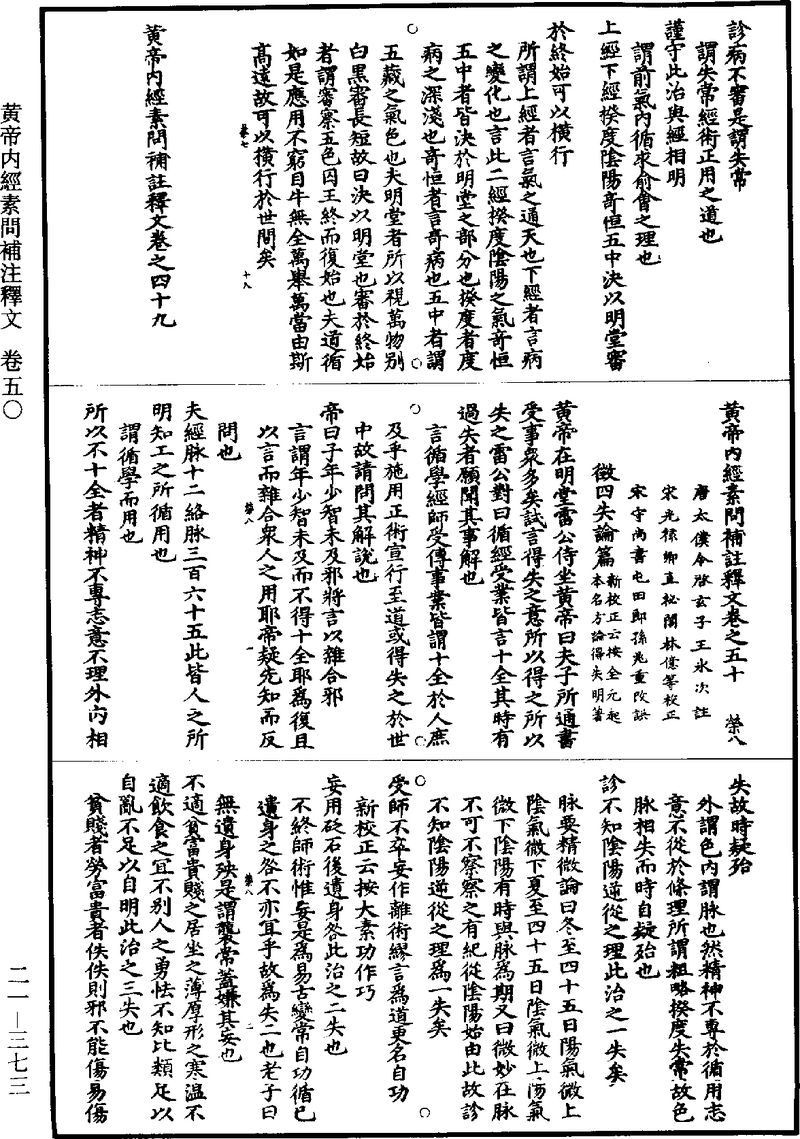 黃帝內經素問補注釋文 卷五〇
二一—三七三
診病不審是謂失常
謂失常經術正用之道也
謹守此治與經相明
謂前氣內循求俞會之理也
上經下經揆度陰陽奇恒五中決以明堂審
於終始可以橫行
所謂上經者言氣之通天也下經者言病
之變化也言此二經揆度陰陽之氣奇恒
五中者皆決於明堂之部分也揆度者度
病之深淺也奇恒者言奇病也五中者謂
五藏之氣色也夫明堂者所以視萬物別
白黑審長短故曰決以明堂也審於終始
者謂審察五色囚王終而復始也夫道循
如是應用不窮目牛無全萬舉萬當由斯
高遠故可以橫行於世間矣
榮七
十八
黃帝內經素問補註釋文卷之四十九
黃帝內經素問補註釋文卷之五十 榮八
唐太僕令啓玄子王冰次註
宋光祿卿直秘閣林億等校正
宋守尚書屯田郎孫兆重改誤
徵四失論篇 新校正云按全元起
本名方論得失明著
黃帝在明堂雷公侍坐黃帝曰夫子所通書
受事衆多矣試言得失之意所以得之所以
失之雷公對曰循經受業皆言十全其時有
過失者願聞其事解也
言循學經師受傳事業皆謂十全於人庶
及乎施用正術宣行至道或得失之於世
中故請問其解說也
帝曰子年少智未及邪將言以雜合邪
言謂年少智未及而不得十全耶爲復且
以言而雜合衆人之用耶帝疑先知而反
榮八
一
問也
夫經脉十二絡脉三百六十五此皆人之所
明知工之所循用也
謂循學而用也
所以不十全者精神不專志意不理外內相
失故時疑殆
外謂色內謂脉也然精神不專於循用志
意不從於條理所謂粗略揆度失常故色
脉相失而時自疑殆也
診不知陰陽逆從之理此治之一失矣
脉要精微論曰冬至四十五日陽氣微上
陰氣微下夏至四十五日陰氣微上陽氣
微下陰陽有時與脉爲期又曰微妙在脉
不可不察察之有紀從陰陽始由此故診
不知陰陽逆從之理爲一失矣
受師不卒妄作離術繆言爲道更名自功
新校正云按大素功作巧
妄用砭石後遺身咎此治之二失也
不終師術惟妄是爲易古變常自功循己
遺身之咎不亦宜乎故爲失二也老子曰
榮八
二
無遺身殃是謂襲常蓋嫌其妄也
不適貧富貴賤之居坐之薄厚形之寒溫不
適飲食之宜不別人之勇怯不知比類足以
自亂不足以自明此治之三失也
貧賤者勞富貴者佚佚則邪不能傷易傷